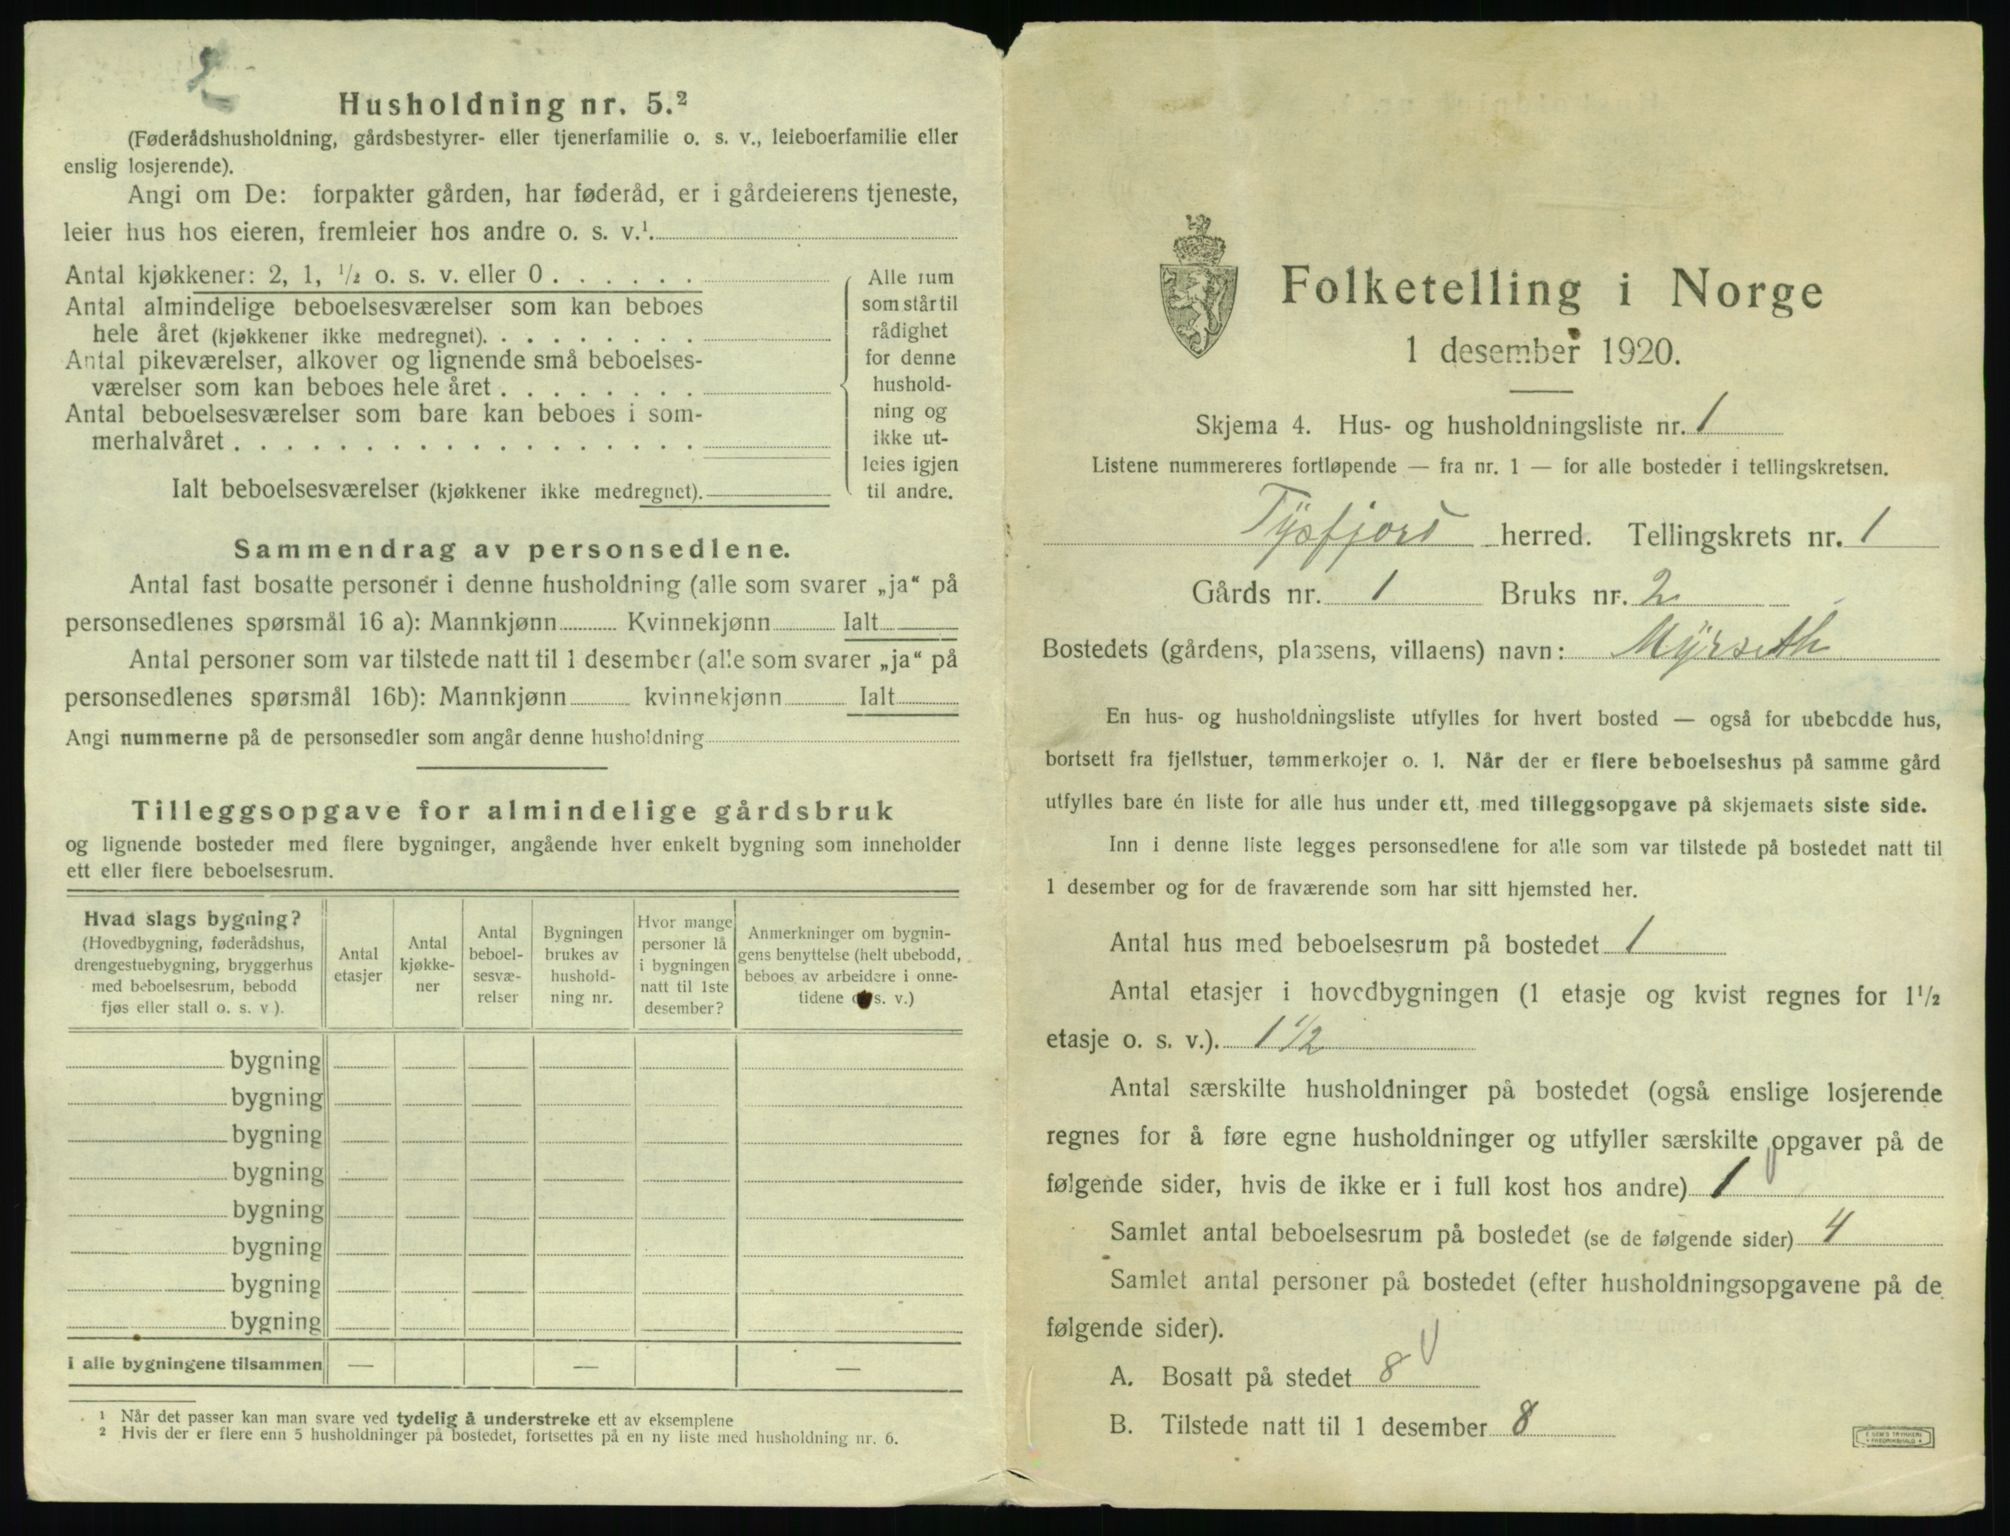 2
Husholdning nr. 5.²
(Føderådshusholdning, gårdsbestyrer- eller tjenerfamilie o. s. v., leieboerfamilie eller
enslig losjerende).
Angi om De: forpakter gården, har føderåd, er i gårdeierens tjeneste,
leier hus hos eieren, fremleier hos andre o. s. v.¹
Antal kjøkkener: 2, 1, ¹/₂ o. s. v. eller 0 . . . . . .
Antal almindelige beboelsesværelser som kan beboes
hele året (kjøkkener ikke medregnet). . . . . . . . .
Antal pikeværelser, alkover og lignende små beboelses-
værelser som kan beboes hele året . . . . . . . .
Antal beboelsesværelser som bare kan beboes i som-
merhalvåret . . . . . . . . . . . . . . . . . .
Ialt beboelsesværelser (kjøkkener ikke medregnet).
Alle rum
som står til
rådighet
for denne
hushold-
ning og
ikke ut-
leies igjen
til andre.
Sammendrag av personsedlene.
Antal fast bosatte personer i denne husholdning (alle som svarer „ja“ på
personsedlenes spørsmål 16 a): Mannkjønn Kvinnekjønn Ialt
Antal personer som var tilstede natt til 1 desember (alle som svarer „ja“ på
personsedlenes spørsmål 16b): Mannkjønn kvinnekjønn Ialt
Angi nummerne på de personsedler som angår denne husholdning
Tilleggsopgave for almindelige gårdsbruk
og lignende bosteder med flere bygninger, angående hver enkelt bygning som inneholder
ett eller flere beboelsesrum.
Hvad slags bygning?
(Hovedbygning, føderådshus,
drengestuebygning, bryggerhus
med beboelsesrum, bebodd
fjøs eller stall o. s. v ).
Antal
etasjer
Antal
kjøkke-
ner
Antal
beboel-
sesvæ-
relser
Bygningen
brukes av
hushold-
ning nr.
Hvor mange
personer lå
i bygningen
natt til 1ste
desember?
Anmerkninger om bygnin-
gens benyttelse (helt ubebodd,
beboes av arbeidere i onne-
tidene o. s. v.)
bygning
bygning
bygning
bygning
bygning
bygning
bygning
bygning
I alle bygningene tilsammen — — —
¹ Når det passer kan man svare ved tydelig å understreke ett av eksemplene
² Hvis der er flere enn 5 husholdninger på bostedet, fortsettes på en ny liste med husholdning nr. 6.
Folketelling i Norge
1 desember 1920.
Skjema 4. Hus- og husholdningsliste nr. 1
Listene nummereres fortløpende — fra nr. 1 — for alle bosteder i tellingskretsen.
Tysfjord herred. Tellingskrets nr. 1
Gårds nr. 1 Bruks nr. 2
Bostedets (gårdens, plassens, villaens) navn: Myrseth
En hus- og husholdningsliste utfylles for hvert bosted — også for ubebodde hus,
bortsett fra fjellstuer, tømmerkojer o. l. Når der er flere beboelseshus på samme gård
utfylles bare én liste for alle hus under ett, med tilleggsopgave på skjemaets siste side.
Inn i denne liste legges personsedlene for alle som var tilstede på bostedet natt til
1 desember og for de fraværende som har sitt hjemsted her.
Antal hus med beboelsesrum på bostedet 1
Antal etasjer i hovedbygningen (1 etasje og kvist regnes for 1¹/₂
etasje o. s. v.). 1 1/2
Antal særskilte husholdninger på bostedet (også enslige losjerende
regnes for å føre egne husholdninger og utfyller særskilte opgaver på de
følgende sider, hvis de ikke er i full kost hos andre) 1
Samlet antal beboelsesrum på bostedet (se de følgende sider) 4
Samlet antal personer på bostedet (efter husholdningsopgavene på de
følgende sider).
A. Bosatt på stedet 8
B. Tilstede natt til 1 desember 8
E SEM'S TRYKKERI
FREDRIKSHALD